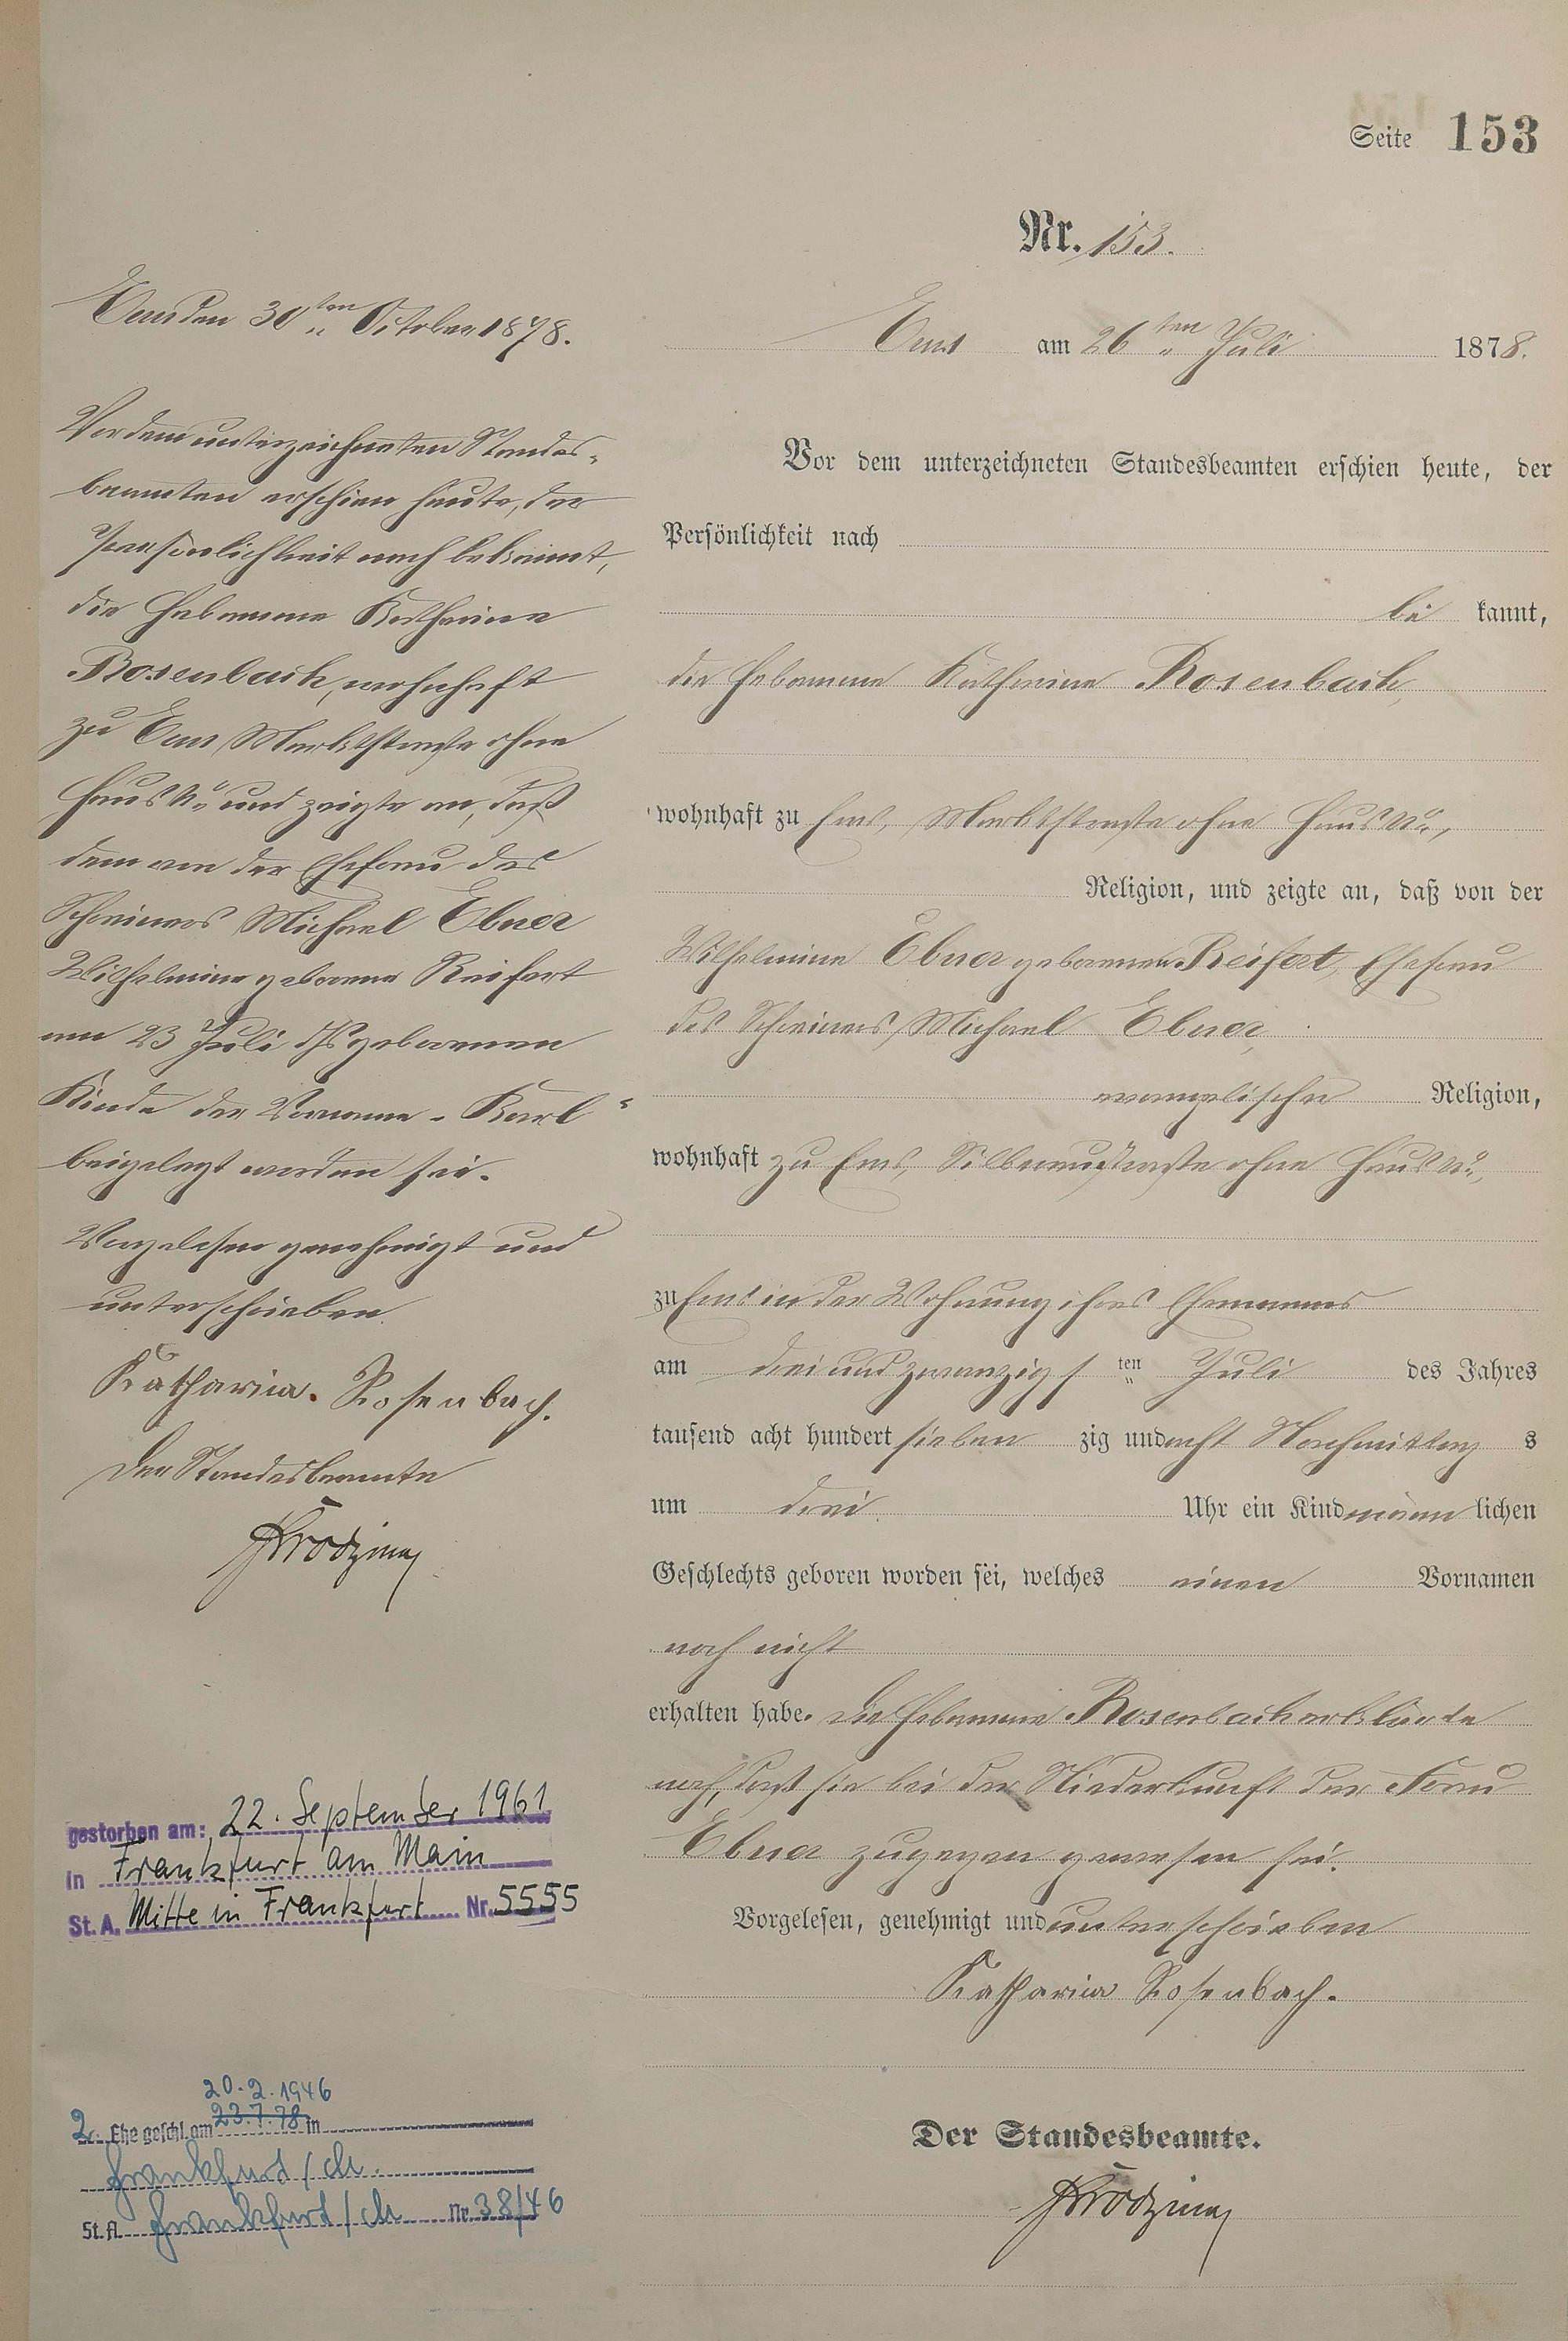 Seite 153
Nr. 153.
Ems am 26ten Juli 1878.
Vor dem unterzeichneten Standesbeamten erschien heute, der
Persönlichkeit nach
be kannt,
die Hebamme Katharina Rosenbach,
wohnhaft zu Ems, Marktstraße ohne Haus No,
Religion, und zeigte an, daß von der
Wilhelmine Ebner geborenen Reifert, Ehefrau
des Schreiners Michael Ebner,
evangelischer Religion,
wohnhaft zu Ems, Silberaustraße ohne Haus No,
zu Ems in der Wohnung ihres Ehemannes
am drei und zwanzigsten Juli des Jahres
tausend acht hundert sieben zig und acht Nachmittags
um drei Uhr ein Kind männ lichen
Geschlechts geboren worden sei, welches einen Vornamen
noch nicht
erhalten habe. Die Hebamme Rosenbach erklärte
noch, daß sie bei der Niederkunft der Frau
Ebner zugegen gewesen sei.
Vorgelesen, genehmigt und unterschrieben
Katharina Rosenbach.
Der Standesbeamte.
Ems den 30ten October 1878.
Vor dem unterzeichneten Standes-
beamten erschien heute, der
Persönlichkeit nach bekannt,
die Hebamme Katharina
Rosenbach, wohnhaft
zu Ems Marktstraße ohne
Haus No und zeigte an, daß
dem von der Ehefrau des
Schreiners Michael Ebner
Wilhelmine geborene Reifert
am 23 Juli d/Js geborenen
Kinde der Vorname "Karl"
beigelegt worden sei.
Vorgelesen genehmigt und
unterschrieben.
Katharina Rosenbach.
Der Standesbeamte
gestorben am: 22. September 1961
in Frankfurt am Main
St. A. Mitte in Frankfurt Nr. 5555
20.2.1946
2. Ehe geschl. am 23.7.78 in
Frankfurt/M.
St. A. Frankfurt/M Nr. 38/46